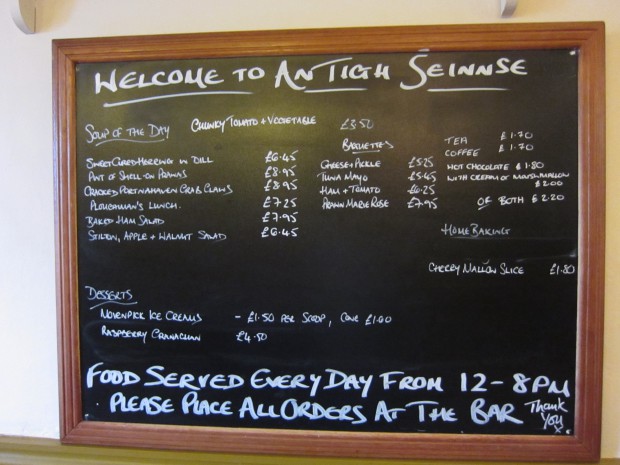 WELCOME TO AN TIGH SEINNSE
SOUP OF THE DAY CHUNKY TOMATO + VEGETABLE £3.50
SWEET CURED HERRING IN DILL £6.45
PINT OF SHELL-ON PRAWNS £8.95
CRACKED PORTNAHAVEN CRAB CLAWS £8.95
PLOUGHMAN'S LUNCH. £7.25
BAKED HAM SALAD £7.95
STILTON, APPLE + WALNUT SALAD £6.45
BAGUETTES
CHEESE + PICKLE £5.25
TUNA MAYO £5.45
HAM + TOMATO £6.25
PRAWN MARIE ROSE £7.95
TEA £1.70
COFFEE £1.70
HOT CHOCOLATE £1.80
WITH CREAM OR MARSHMALLOW
£2.00
OR BOTH £2.20
HOME BAKING
CHERRY MALLOW SLICE £1.80
DESSERTS
MOVENPICK ICE CREAMS - £1.50 PER SCOOP, CONE £1.00
RASPBERRY CRANACHAN £4.50
FOOD SERVED EVERY DAY FROM 12-8PM
PLEASE PLACE ALL ORDERS AT THE BAR
THANK
YOU x